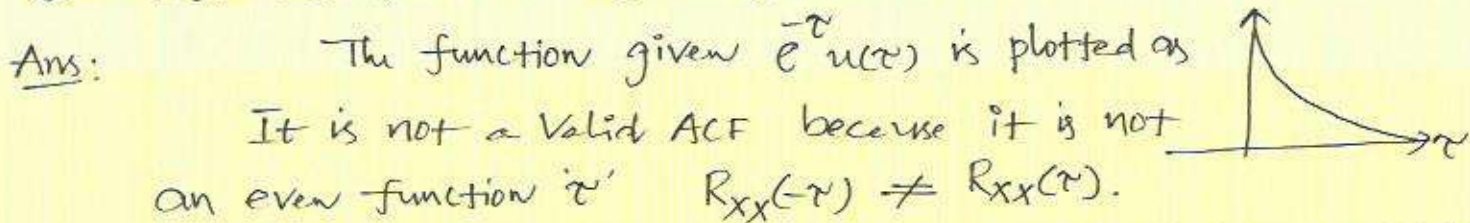 Ans: The function given e^-τ u(τ) is plotted as
It is not a Valid ACF because it is not
an even function 'τ' R_XX(-τ) ≠ R_XX(τ).
τ